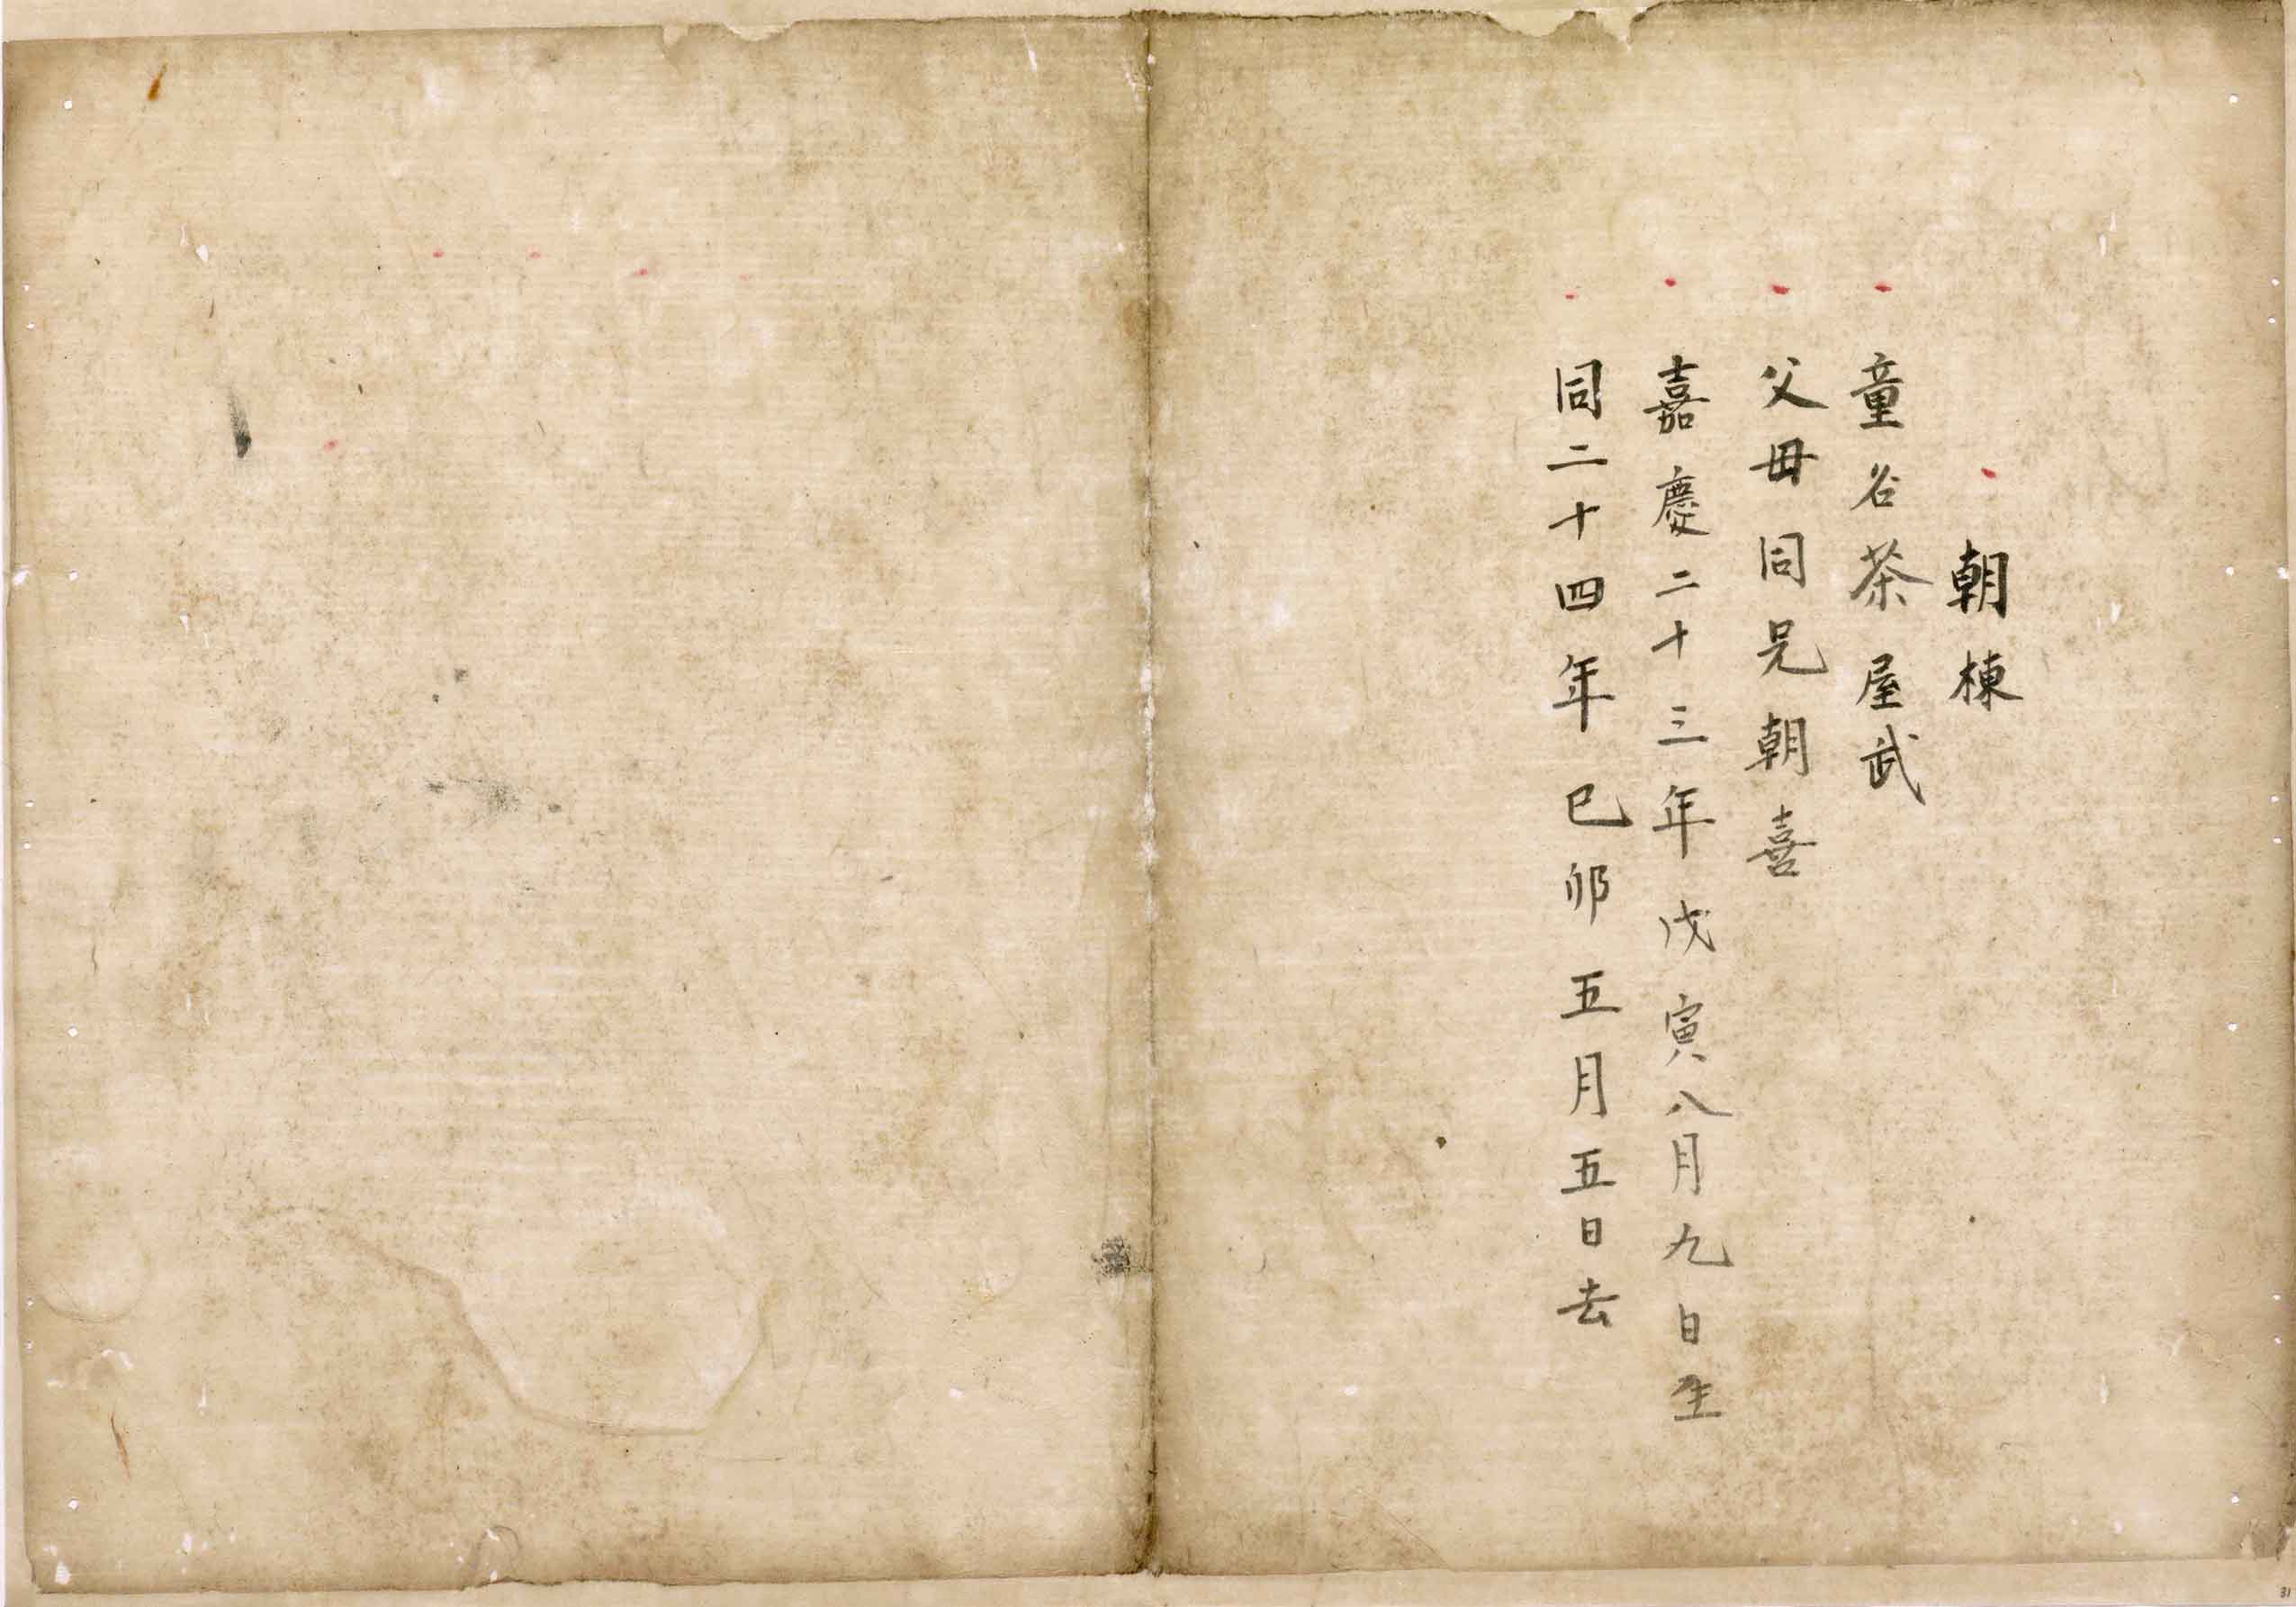 朝棟
童名茶屋武
父毋同兄朝喜
嘉慶二十三年戊寅八月九日生
同二十四年已卯五月五日去
31